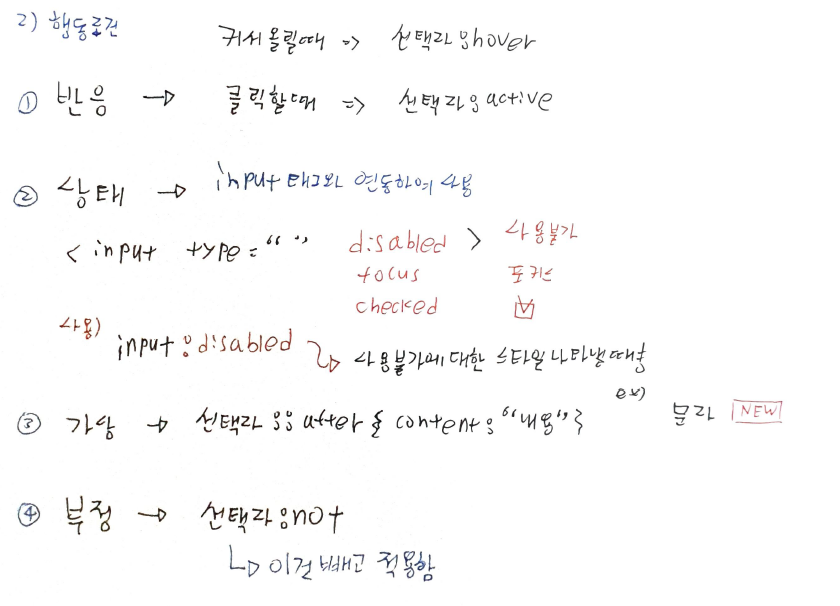 2) 행동조건
커서 올릴때 => 선택자:hover
① 반응 → 클릭할때 => 선택자:active
② 상태 → input 태그와 연동하여 사용
< input type = “ ” disabled > 사용불가
focus 포커스
checked ☑
사용) input:disabled → 사용불가에 대한 스타일 나타낼때
ex)
③ 가상 → 선택자::after { content:“내용”} 문라 NEW
④ 부정 → 선택자:not
↳ 이건 빼고 적용함